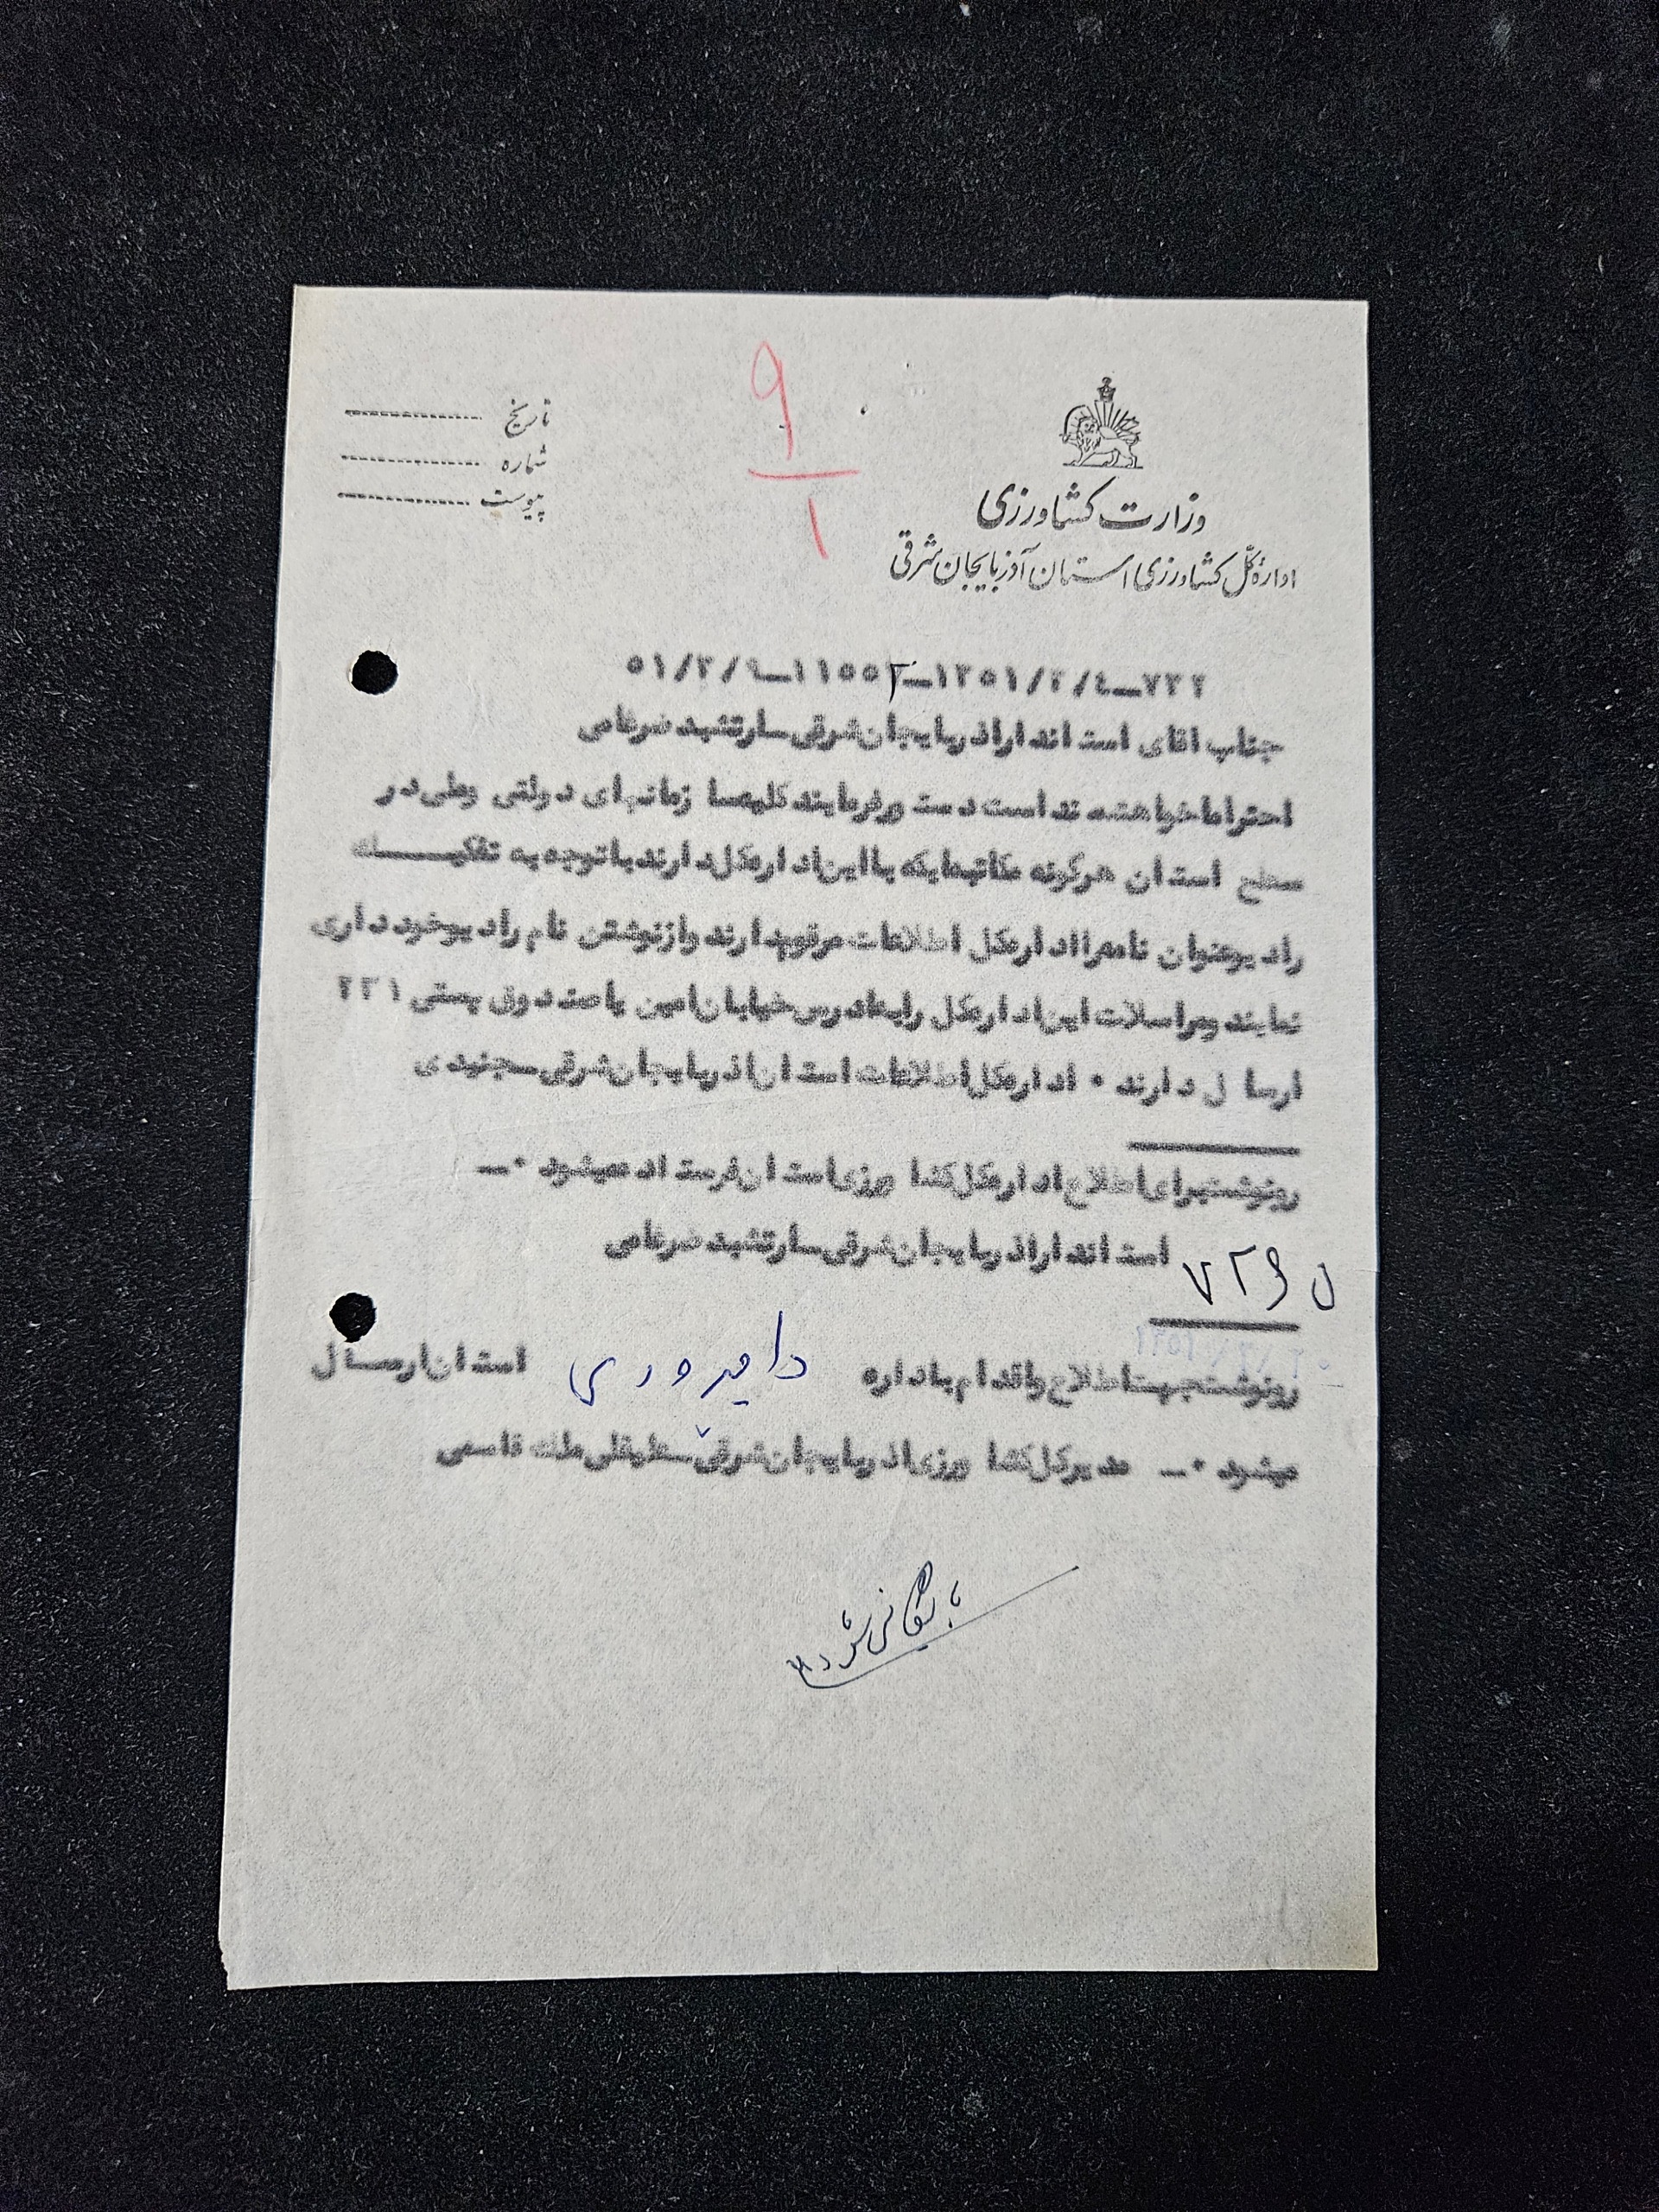 ۹
۱
تاریخ
شماره
پیوست
وزارت کشاورزی
اداره کل کشاورزی استان آذربایجان شرقی
۷۳۲-۱۳۵۱/۲/۴-۱۱۵۵۲-۵۱/۲/۹
جناب اقای استاندار اذربایجان شرقی سپارتشبد ضرغامی
احتراما خواهشمند است دستور فرمایند کلیه سازمانهای دولتی وملی در
سطح استان هرگونه مکاتبه ایکه با این اداره کل دارند با توجه به تفکیک
رادیو عنوان نامه را اداره کل اطلاعات مرقوم دارند و از نوشتن نام رادیو خود داری
نمایند و مراسلات این اداره کل را به ادرس خیابان امین یا صندوق پستی ۲۳۱
ارسال دارند ۰ اداره کل اطلاعات استان اذربایجان شرقی
رونوشت برای اطلاع اداره کل کشاورزی استان فرستاده میشود ۰-
استاندار اذربایجان شرقی ضرغامی
ل ۷۲۶
رونوشت جهت اطلاع و اقدام باداره دامپروری استان ارسال
میشود ۰- مدیر کل کشاورزی اذربایجان شرقی ملک قاسمی
بایگانی شود